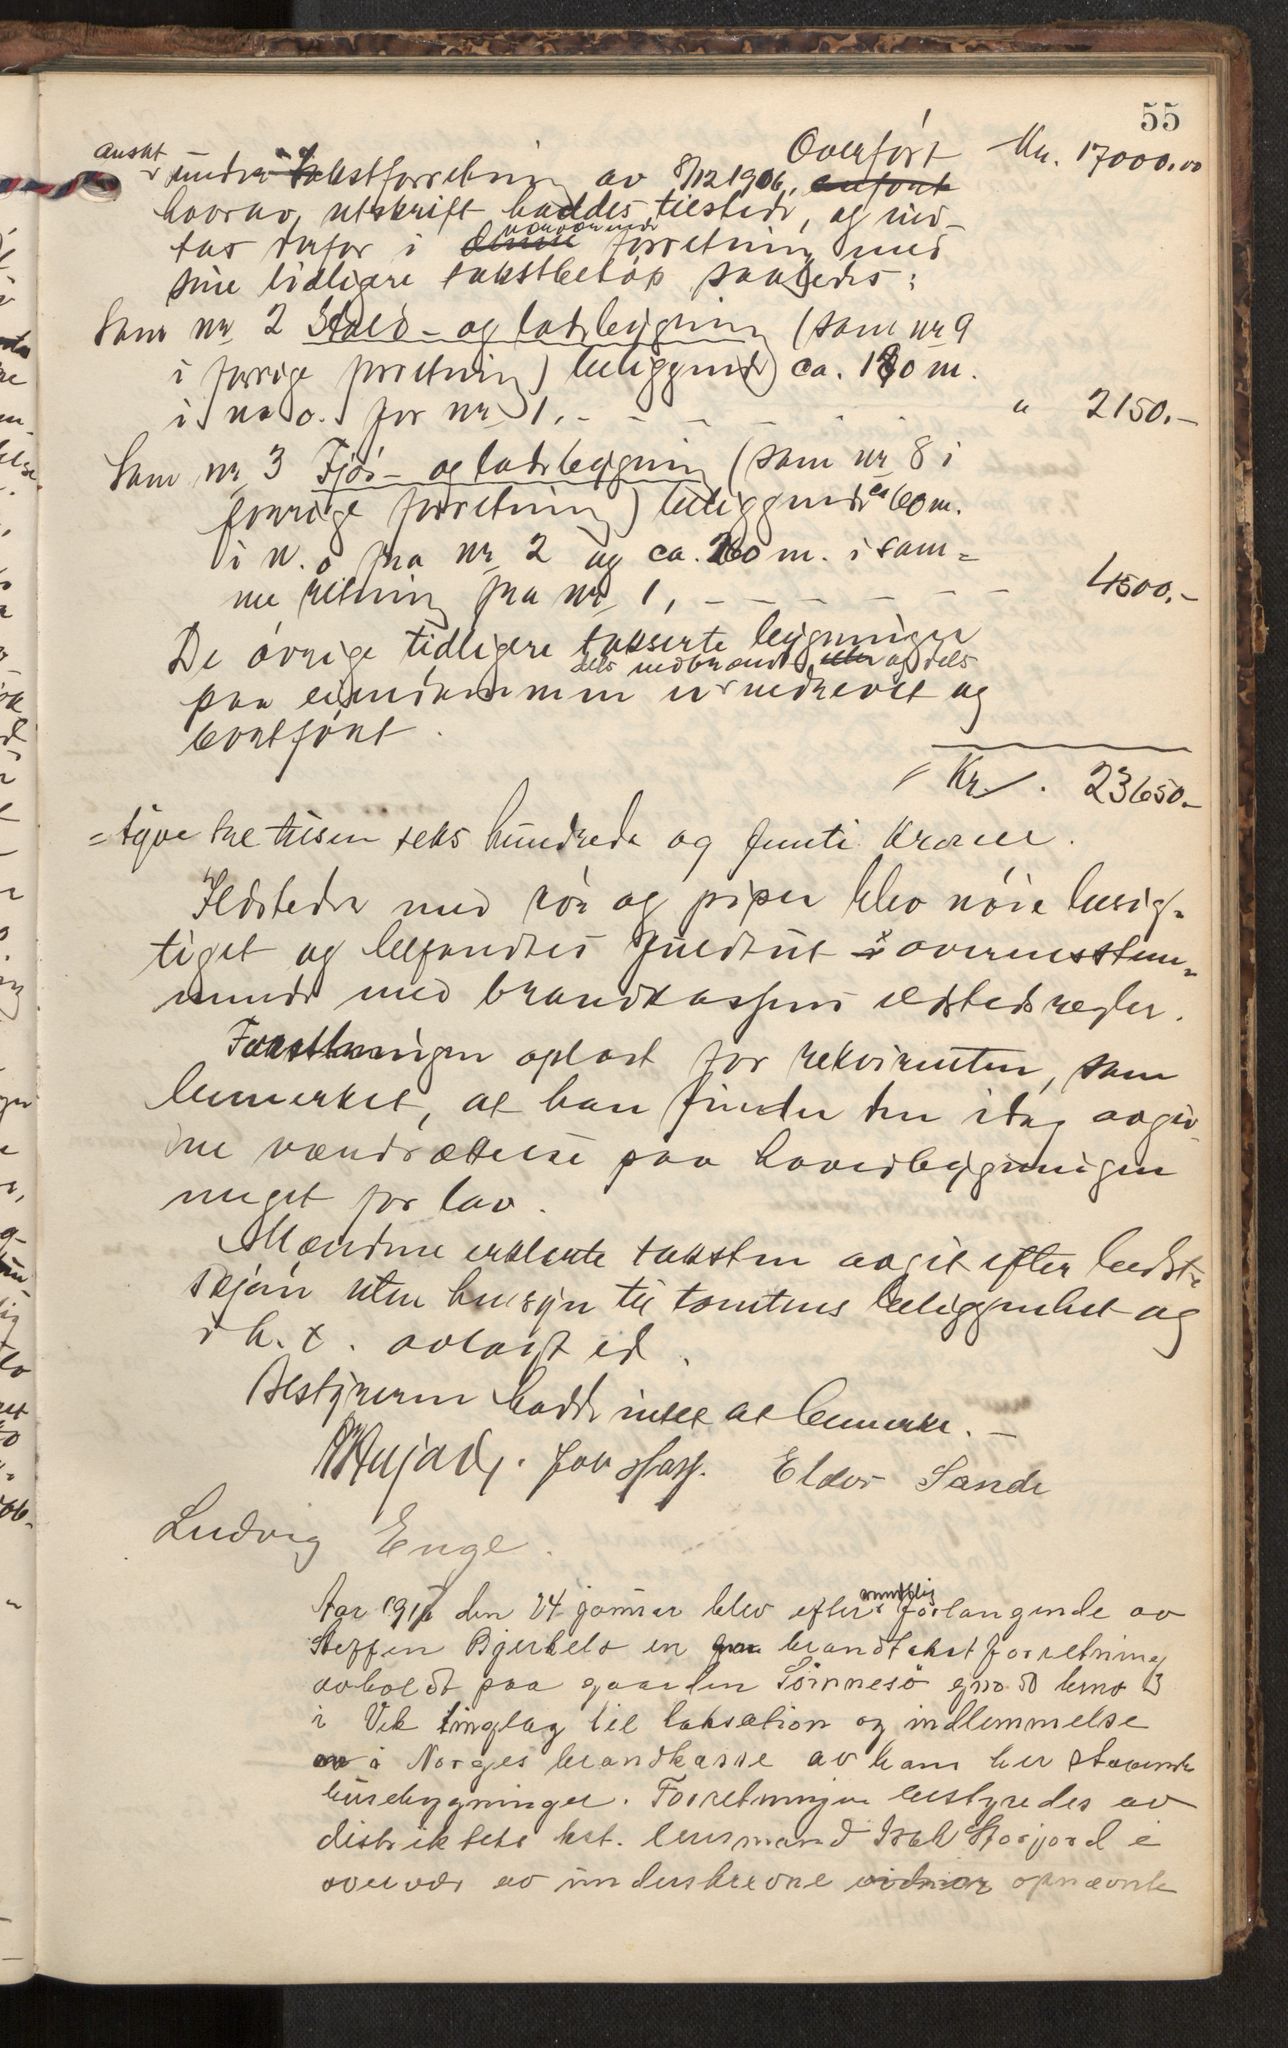 55
Overført Kr. 17000.00
ansat
under takstforretning av 8/12 1906, anført
hvorav utskrift haddes tilstede, og ind-
nærværende
tas derfor i denne forretning med
sine tidligere takstbeløp saaledes:
Som nr 2 Stald- og ladebygning (som nr 9
i forrige forretning) beliggende ca. 180 m.
i n o. for nr 1, - - - - - - " 2150.-
Som nr 3 Fjøs- og ladebygning (som nr 8 i
forrige forretning) beliggende ca 60 m.
i n. o fra nr 2 og ca. 260 m. i sam-
me retning fra nr 1, - - - - - - 4500.-
De øvrige tidligere takserte bygninger
dels nedbrændt og dels
paa eiendommen er nedrevet og
bortført.
Kr. 23650.-
= tyve tre tusen seks hundrede og femti kroner.
Ildstedene med rør og piper blev nøie besig-
tiget og befandtes fuldt ut i overensstem-
mende med brandkassens ildstedsregler.
Forretningen oplæst for rekvirenten, som
bemerket, at han finder den idag avgiv-
ne værdsættelse paa hovedbygningen
meget for lav.
Mændene erklærte taksten avgit efter bedste
skjøn uten hensyn til tomtens beliggenhet og
i h. t. avlagt ed.
Bestyreren hadde intet at bemerke. -
Eldor Sande
Ludvig Enge.
mundtlig
Aar 1917 den 24 januar blev efter forlangende av
Steffen Bjerkelo en brandtakstforretning
avholdt paa gaarden Sørnnesø gno 50 bno 3
i Vik tinglag til taksation og indlemmelse
i Norges brandkasse av ham her staaende
husebygninger. Forretningen bestyredes av
distriktets kst. lensmand Isak Storjord i
overvær av underskrevne vidner opnævnte